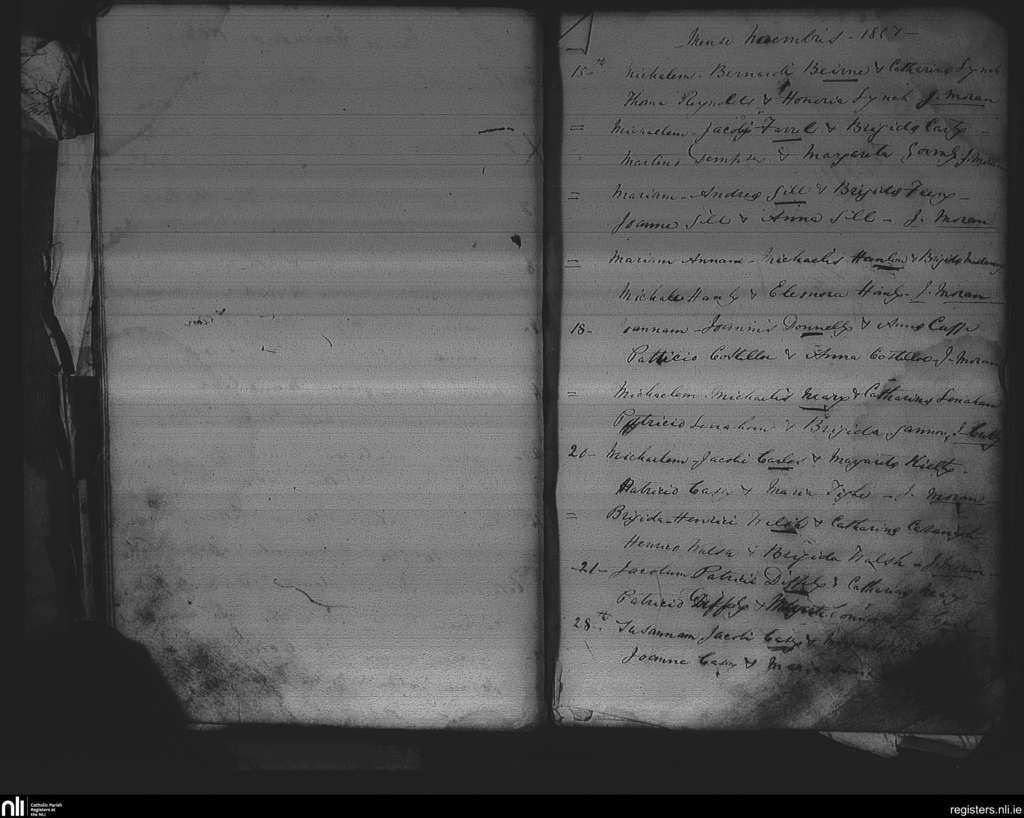 Mense Novembris - 18
15th Michalem - Bernardi Beirne & Catharina Lynch
Thoma Reynolds & Honoria Lynch J. Moran
= Michaelem - Jacobi Farrel & Brigida
Martino Dempsey & Margarita J. Moran
= Mariam - Andrea Gill & Brigida Feeny -
Joanne Gill & Anna Gill - J. Moran
= Mariam Annam - Michaelis Hanlon & Brigida
Michale Hanly & Eleonora Hanly - J. Moran
18 - Joannam - Joannis Donnelly & Anna Cuffe
Patricio Costelloe & Anna Costelloe J. Moran
= Michaelem - Michaelis Neary & Catharina Lenahan
Patricio Lenahan & Brigida Gannon, J.
20 - Michaelem - Jacobi Carlos & Margarita Kielty.
Patricio Casey & Maria Tighe - J. Moran
= Brigida - Henrici Walsh & Catharina
Henrico Walsh & Brigida Walsh - J. Moran
- 21 - Jacobum Patricii Diffly & Catharina Neary
Patricio Diffly &
28th Susannam Jacobi Casey &
Joanne Casey & Maria
nli
Catholic Parish
Registers at
the NLI
registers.nli.ie